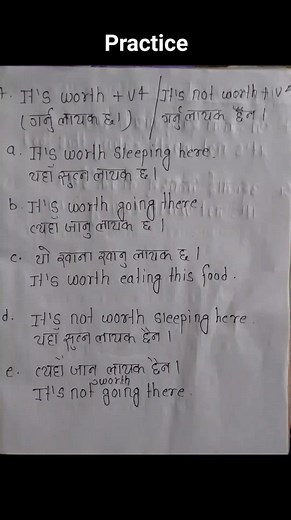 Practice
7. It's worth + V4 / It's not worth + V4
(गर्नु लायक छ।) / गर्नु लायक छैन।
a. It's worth sleeping here.
यहाँ सुत्न लायक छ।
b. It's worth going there.
त्यहाँ जानु लायक छ।
c. यो खाना खानु लायक छ।
It's worth eating this food.
d. It's not worth sleeping here.
यहाँ सुत्न लायक छैन।
e. त्यहाँ जान लायक छैन।
It's not worth going there.